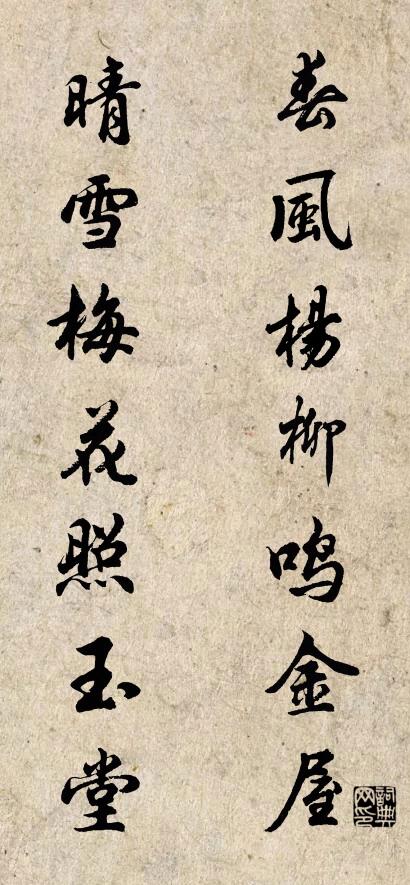 春風楊柳鳴金屋
晴雪梅花照玉堂
詞典网印